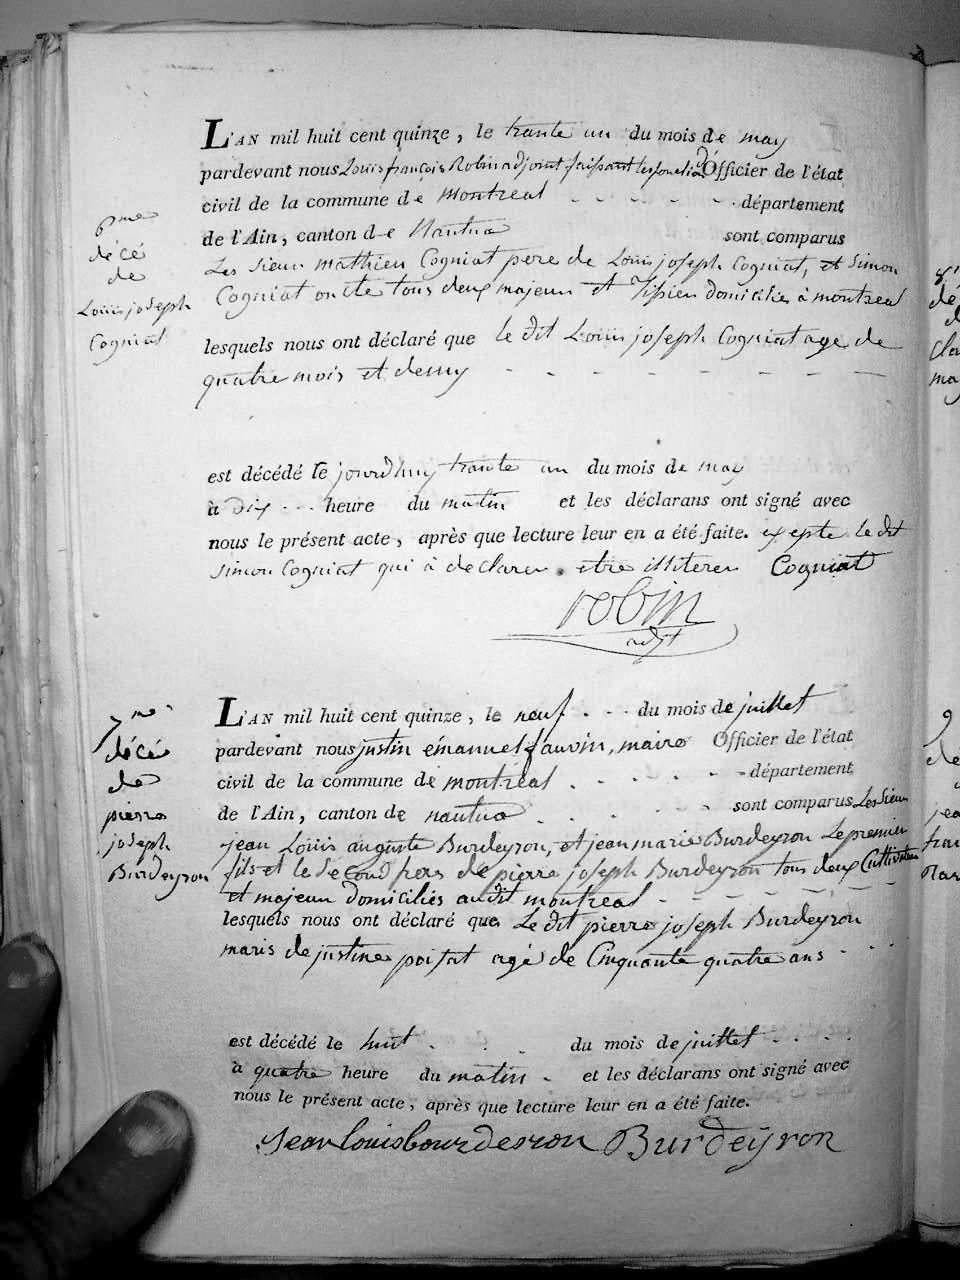 6me
décé
de
Louis joseph
Cogniat
L'AN mil huit cent quinze, le trante un du mois de may
pardevant nous Louis françois Robin adjoint faissant les fonction d'Officier de l'état
civil de la commune de montreal département
de l'Ain, canton de Nantua sont comparus
Les sieur mathieu Cogniat pere de Louis joseph Cogniat, et Simon
Cogniat oncle tous deux majeur et Tissieu domiciliés à montreal
lesquels nous ont déclaré que le dit Louis joseph Cogniat age de
quatre mois et demy
est décédé le jourdhuy trante un du mois de may
à dix heure du matin et les déclarans ont signé avec
nous le présent acte, après que lecture leur en a été faite. exepte le dit
simon Cogniat qui à declarer etre illiterer Cogniat
robin
adjt
7me
décé
de
pierre
joseph
Burdeyron
L'AN mil huit cent quinze, le neuf du mois de juillet
pardevant nous justin émanuel fauvin, maire Officier de l'état
civil de la commune de montréal département
de l'Ain, canton de nantua sont comparus Les sieur
jean Louis auguste Burdeyron, et jean marie Burdeyron Le premier
fils et le second frere de pierre joseph Burdeyron tous deux Cultivateur
et majeur domiciliés audit montreal
lesquels nous ont déclaré que Le dit pierre joseph Burdeyron
maris de justine poisat agé de Cinquante quatre ans
est décédé le huit du mois de juillet
à quatre heure du matin et les déclarans ont signé avec
nous le présent acte, après que lecture leur en a été faite.
Jean louis bourdesron Burdeÿron